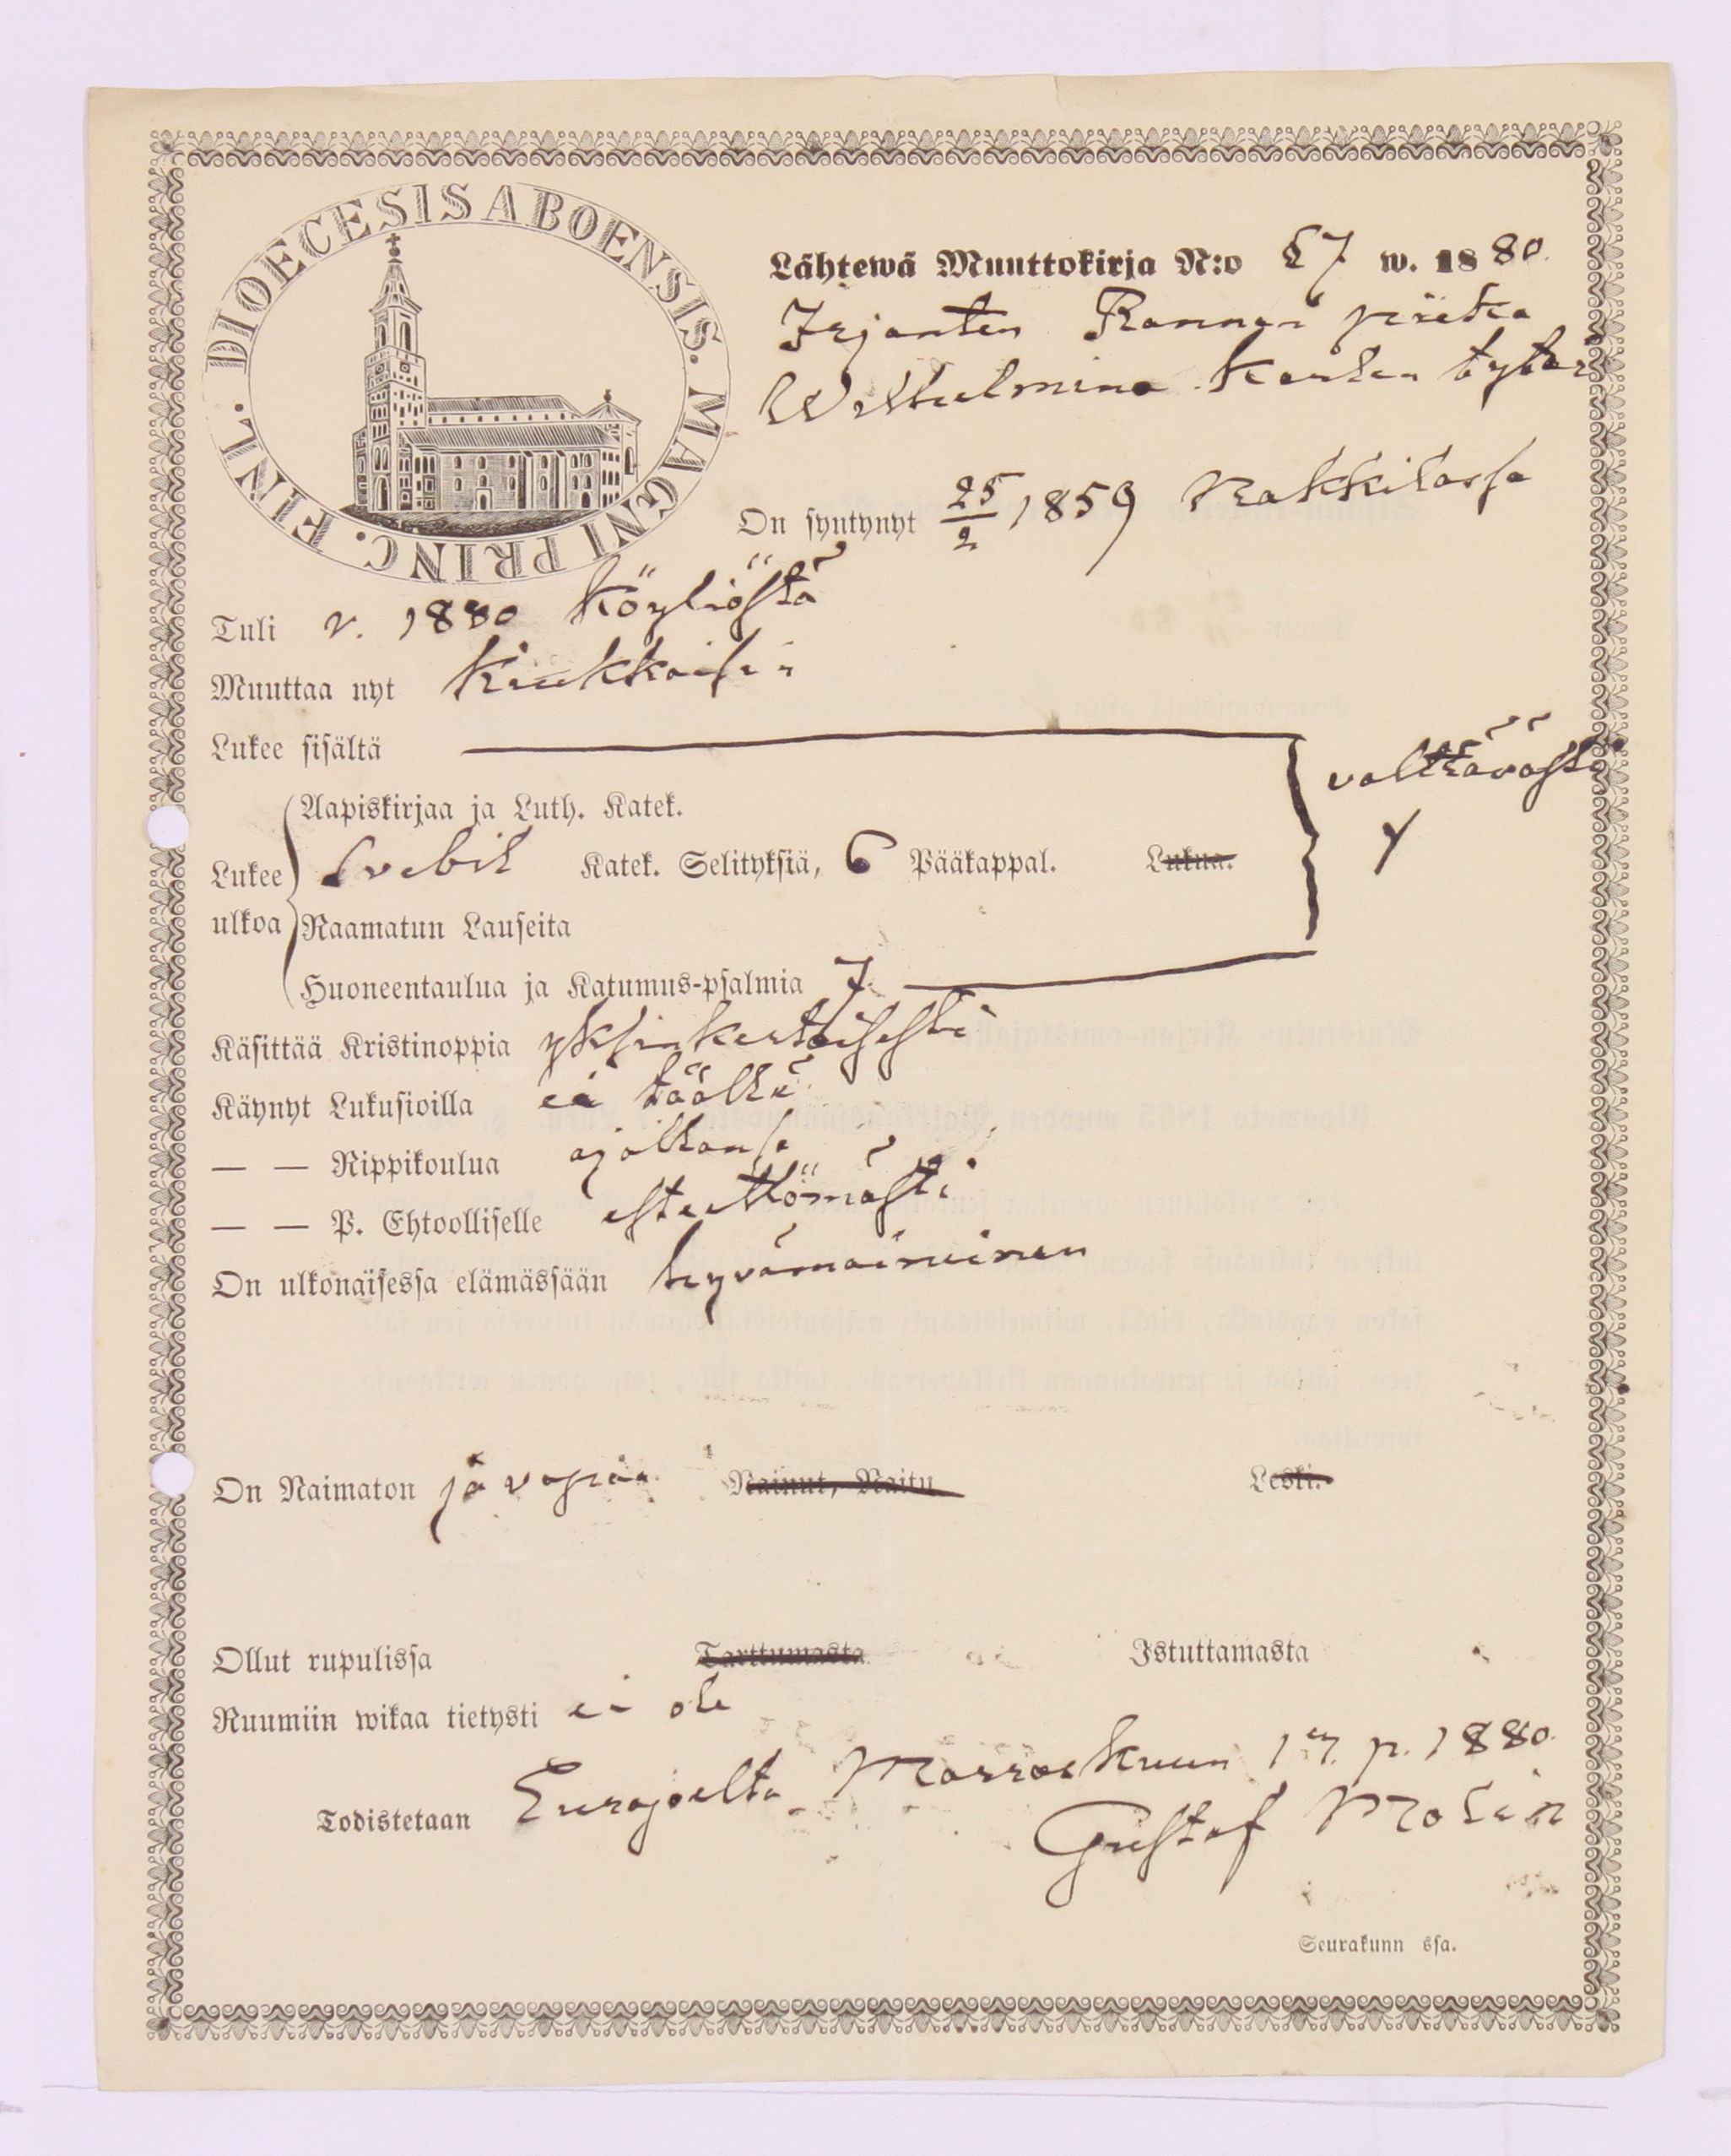 DIOECESIS ABOENSIS. MAGNI PRINC. FINL.
Lähtewä Muuttokirja N:o 57 w. 1880.
Irjanten Rannan piika
Wilhelmina Karlen tytär
On syntynyt 25/2 1859 Nakkilassa
Tuli v. 1880 Köyliöstä
Muuttaa nyt Kiukkaisiin
Lukee sisältä
välttävästi
Aapiskirjaa ja Luth. Katek.
Lukee Svebil Katek. Selityksiä, 6 Pääkappal. Lukua.
ulkoa Raamatun Lauseita
Huoneentaulua ja Katumus-psalmia 7
Käsittää Kristinoppia yksinkertaisesti
Käynyt Lukusioilla ei täällä
— — Rippikoulua ajallansa
— — P. Ehtoolliselle esteettömästi
On ulkonaisessa elämässään hyvämaineinen
On Naimaton ja vapaa Nainut, Naitu Leski.
Ollut rupulissa Tarttumasta Istuttamasta
Ruumiin wikaa tietysti ei ole
Todistetaan Eurajoelta Marraskuun 17 p. 1880.
Gustaf Molin
Seurakunn ssa.